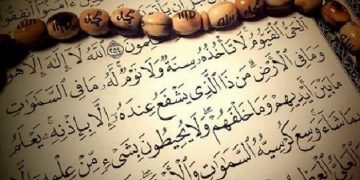 محمد
الله
محمد
لمون ٢٥٤ ٱللَّهُ لَآ إِلَٰهَ إِلَّا هُوَ
ٱلْحَىُّ ٱلْقَيُّومُ لَا تَأْخُذُهُۥ سِنَةٌ وَلَا نَوْمٌ لَّهُۥ مَا فِى ٱلسَّمَٰوَٰتِ
وَمَا فِى ٱلْأَرْضِ مَن ذَا ٱلَّذِى يَشْفَعُ عِندَهُۥٓ إِلَّا بِإِذْنِهِۦ يَعْلَمُ
مَا بَيْنَ أَيْدِيهِمْ وَمَا خَلْفَهُمْ وَلَا يُحِيطُونَ بِشَىْءٍ مِّنْ عِلْمِهِۦٓ إِلَّا
بِمَا شَآءَ وَسِعَ كُرْسِيُّهُ ٱلسَّمَٰوَٰتِ وَٱلْأَرْضَ
ٱلْعَظِيمُ